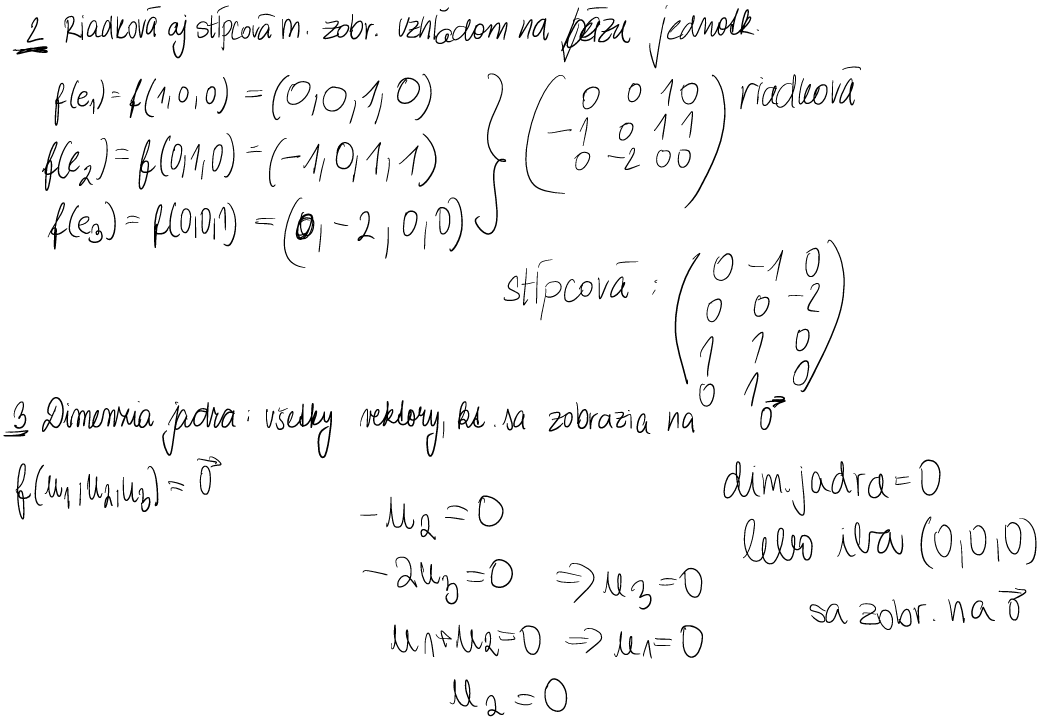 2 Riadková aj stĺpcová m. zobr. vzhľadom na bázu jednotk.
f(e₁) = f(1,0,0) = (0,0,1,0)
f(e₂) = f(0,1,0) = (-1,0,1,1)
f(e₃) = f(0,0,1) = (0,-2,0,0)
0 0 1 0 riadková
-1 0 1 1
0 -2 0 0
stĺpcová :
0 -1 0
0 0 -2
1 1 0
0 1 0
3 Dimenzia jadra : všetky vektory, kt. sa zobrazia na 0⃗
f(u₁,u₂,u₃) = 0⃗
-u₂ = 0
-2u₃ = 0 ⇒ u₃ = 0
u₁+u₂ = 0 ⇒ u₁ = 0
u₂ = 0
dim. jadra = 0
lebo iba (0,0,0)
sa zobr. na 0⃗